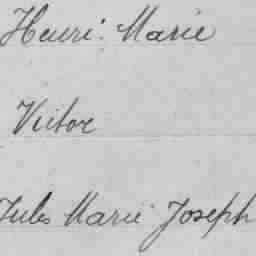 Henri Marie
Victor
Jules Marie Joseph